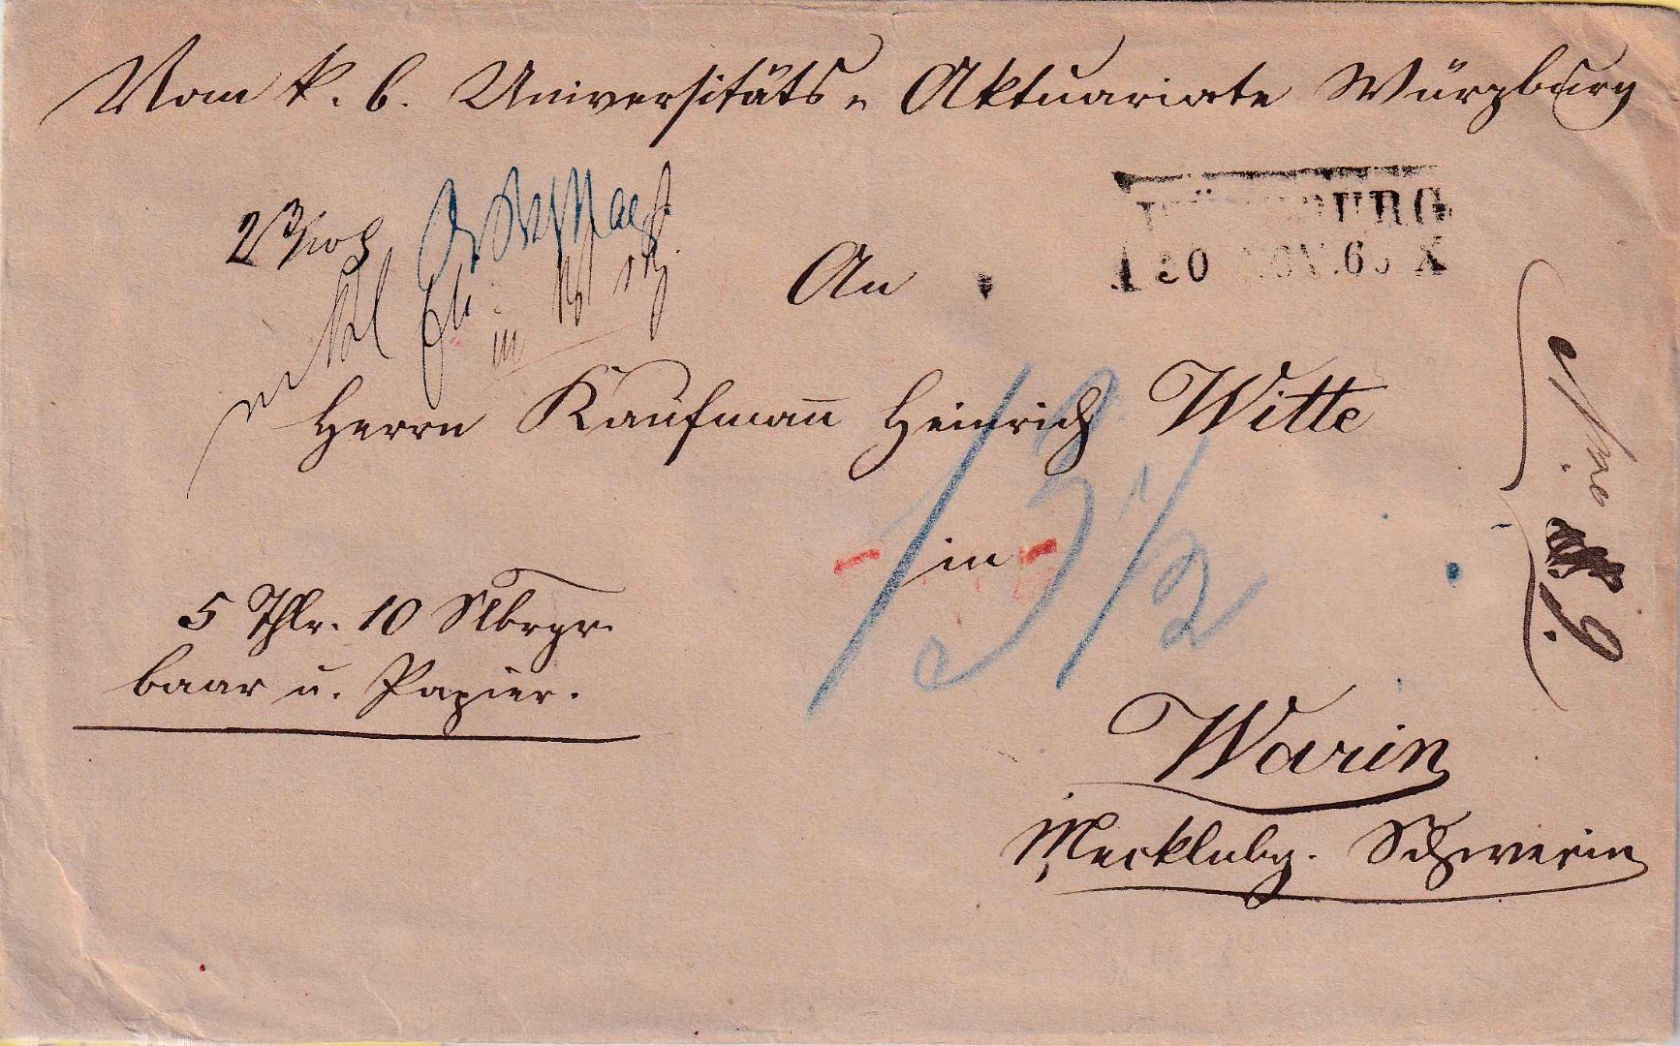 Vom k. b. Universitäts- Aktuariate Würzburg
WÜRZBURG
NOV. X
An
Herrn Kaufmann Heinrich Witte
13 1/2
in
5 Thlr. 10 Slbrgr.
baar u. Papier.
Warin
Mecklnbg. Schwerin